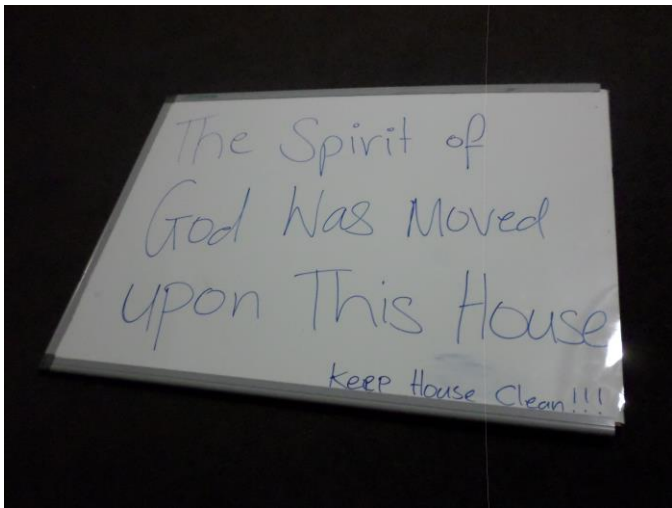 The Spirit of
God Was Moved
upon This House
Keep House Clean!!!